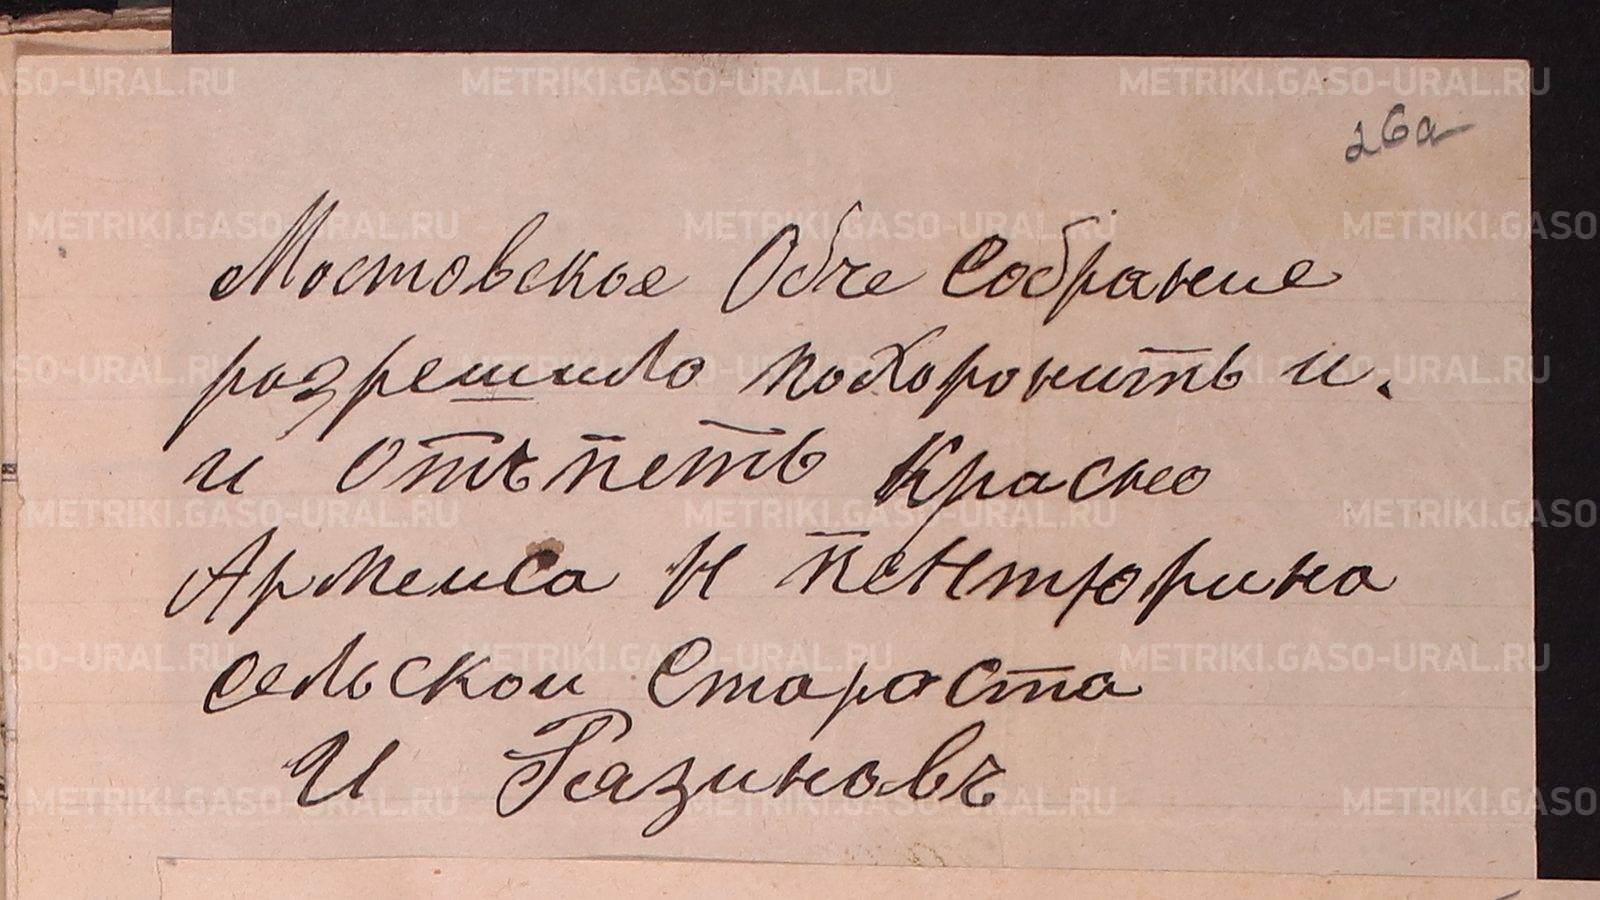 26а
Мостовское Обче Собрание
розрешило похоронить и.
и отъпеть Красно
Армеиса Н Пентюрина
сельскои Староста
И Рязиновъ
METRIKI.GASO-URAL.RU